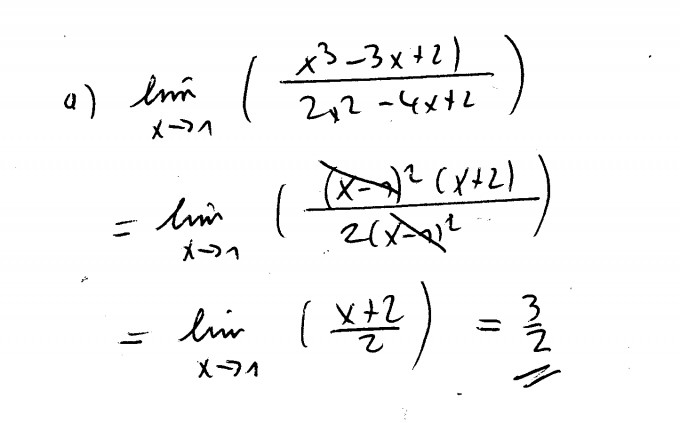 a) lim x→1 ( x³ - 3x + 2) / 2x² - 4x + 2 )
= lim x→1 ( (x-1)² (x+2) / 2(x-1)² )
= lim x→1 ( x+2 / 2 ) = 3/2